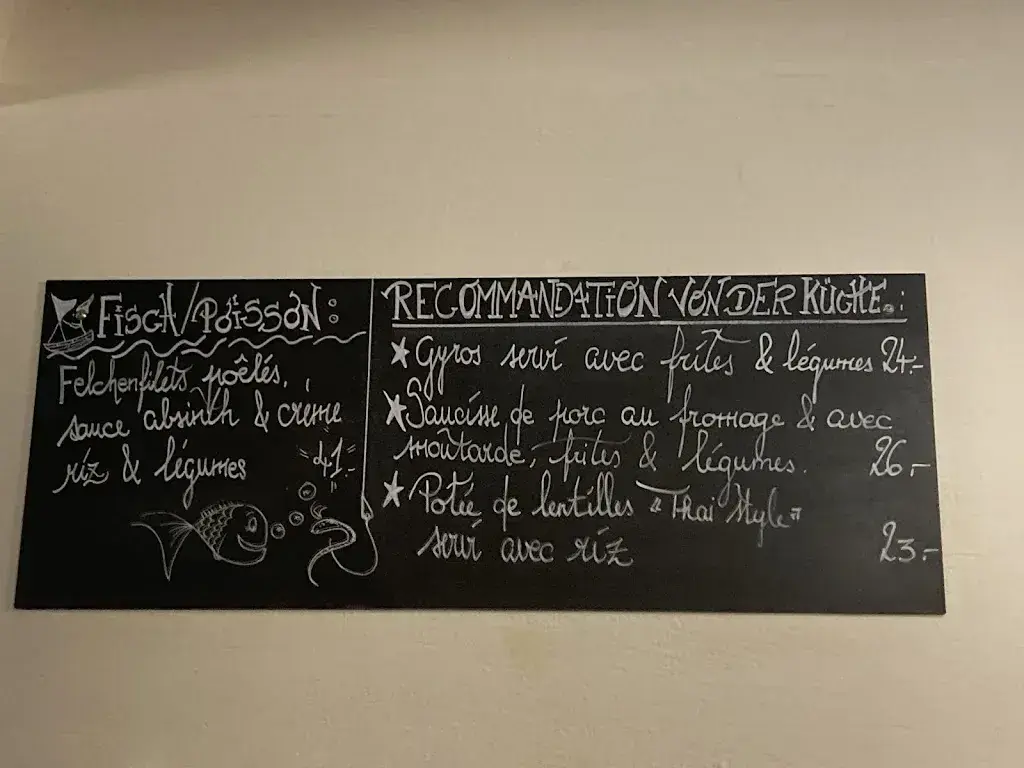 Fisch/Poisson:
Felchenfilets poêlés,
sauce absinth & crème
riz & légumes 41.-
RECOMMANDATION VON DER KÜCHE.:
Gyros servi avec frites & légumes 24.-
Saucisse de porc au fromage & avec
moûtarde, frites & légumes. 26.-
Potée de lentilles "Thai Style"
servi avec riz 23.-